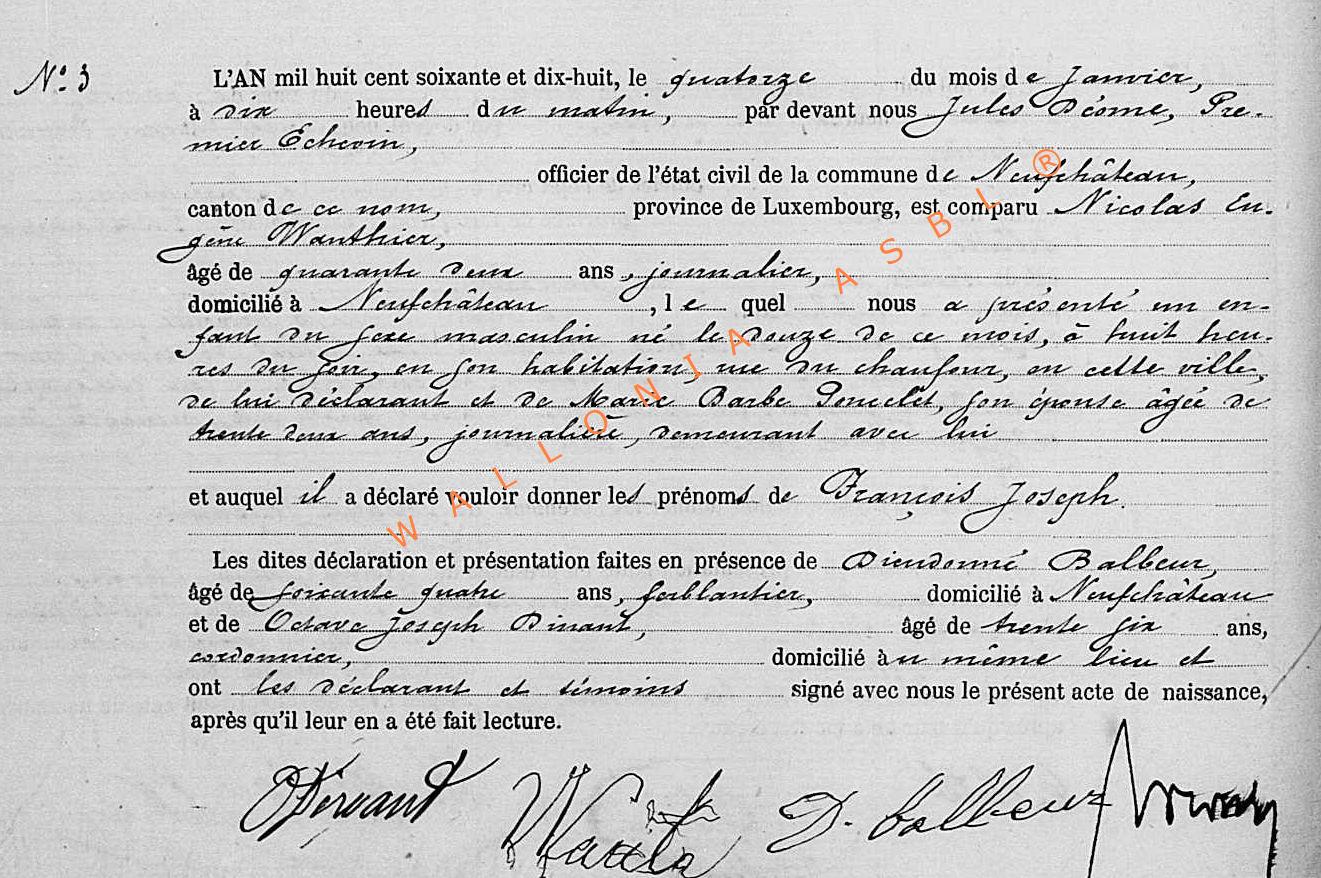 N° 3
L'AN mil huit cent soixante et dix-huit, le quatorze du mois de Janvier,
à dix heures du matin, par devant nous Jules Déome, Pre-
mier Echevin,
officier de l'état civil de la commune de Neufchâteau,
canton de ce nom, province de Luxembourg, est comparu Nicolas Eu-
gène Wauthier,
âgé de quarante deux ans, journalier,
domicilié à Neufchâteau, le quel nous a présenté un en-
fant du sexe masculin né le douze de ce mois, à huit heu-
res du soir, en son habitation, rue du chaufour, en cette ville,
de lui déclarant et de Marie Barbe Poncelet, son épouse âgée de
trente deux ans, journalière, demeurant avec lui
et auquel il a déclaré vouloir donner les prénoms de François Joseph.
Les dites déclaration et présentation faites en présence de Dieudonné Balbeur,
âgé de soixante quatre ans, ferblantier, domicilié à Neufchâteau
et de Octave Joseph Dinant, âgé de trente six ans,
cordonnier, domicilié au même lieu et
ont les déclarant et témoins signé avec nous le présent acte de naissance,
après qu'il leur en a été fait lecture.
D. Balbeur
WALLONIA ASBL ®